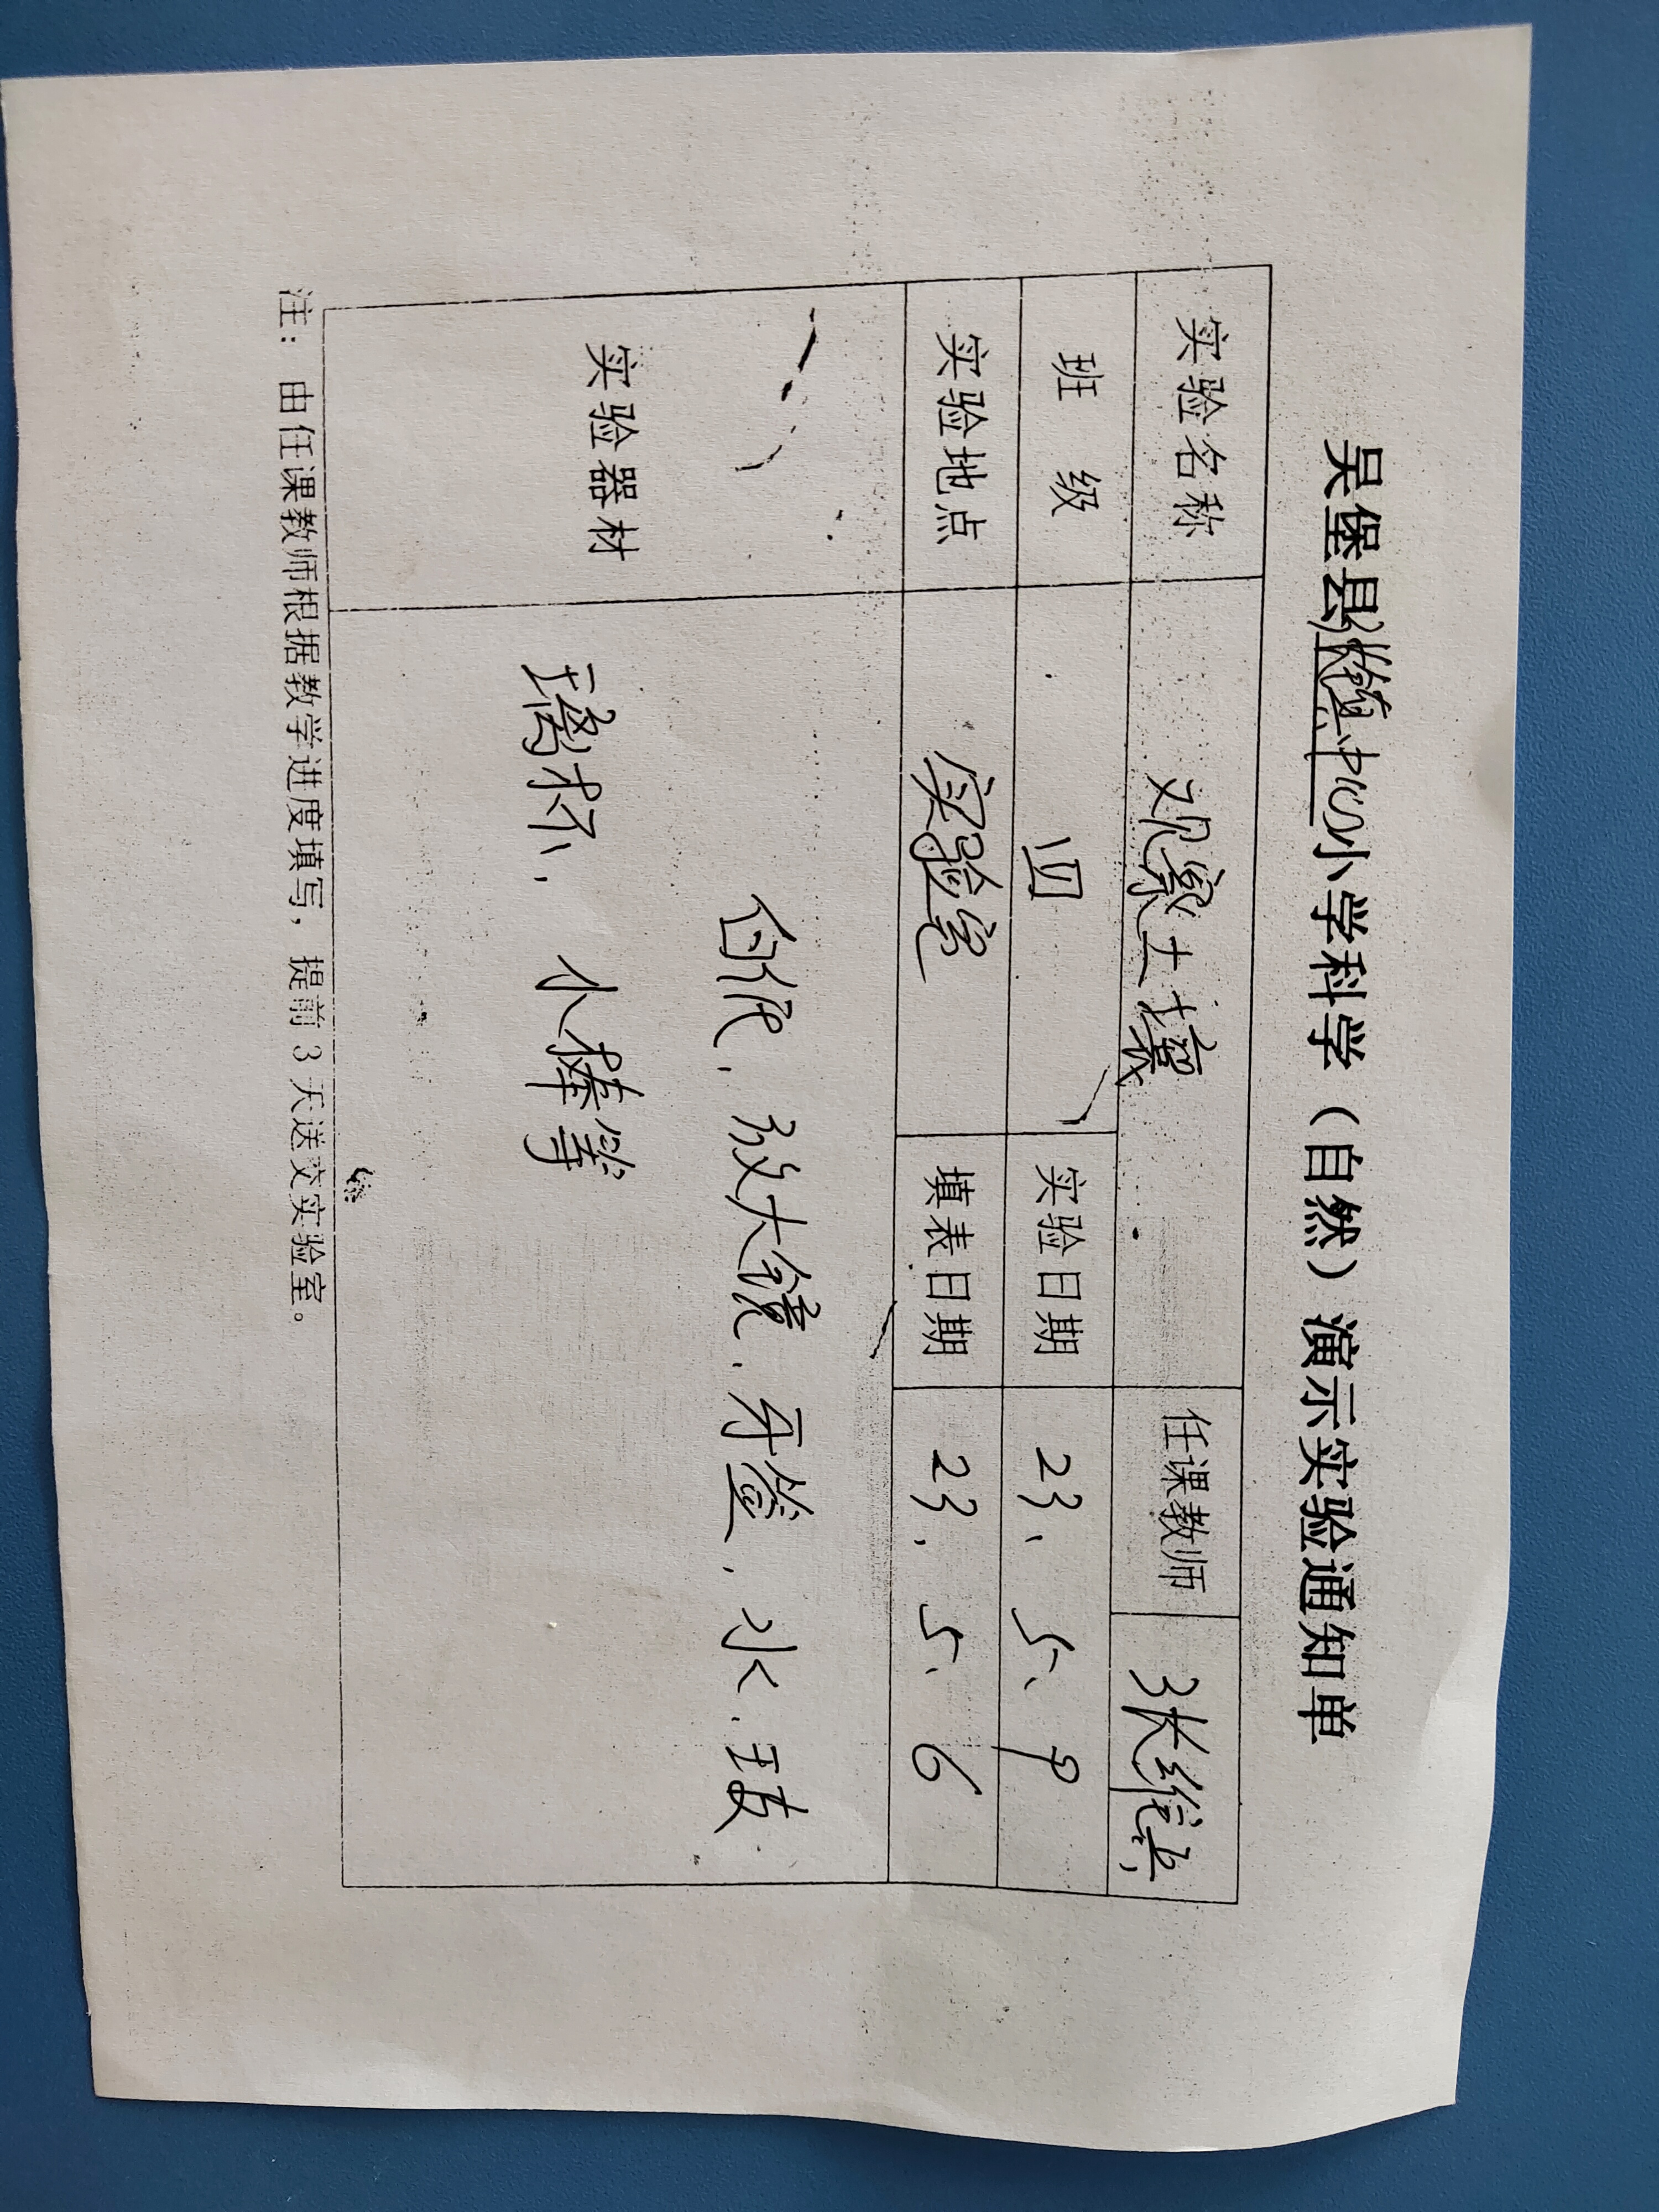 吴堡县张家山镇中心小学科学（自然）演示实验通知单
实验名称 观察土壤 任课教师 张维兵
班 级 四 实验日期 23、5、9
实验地点 实验室 填表日期 23、5、6
实验器材 白纸、放大镜、牙签、水、玻
璃杯、小棒等
注：由任课教师根据教学进度填写，提前3天送交实验室。